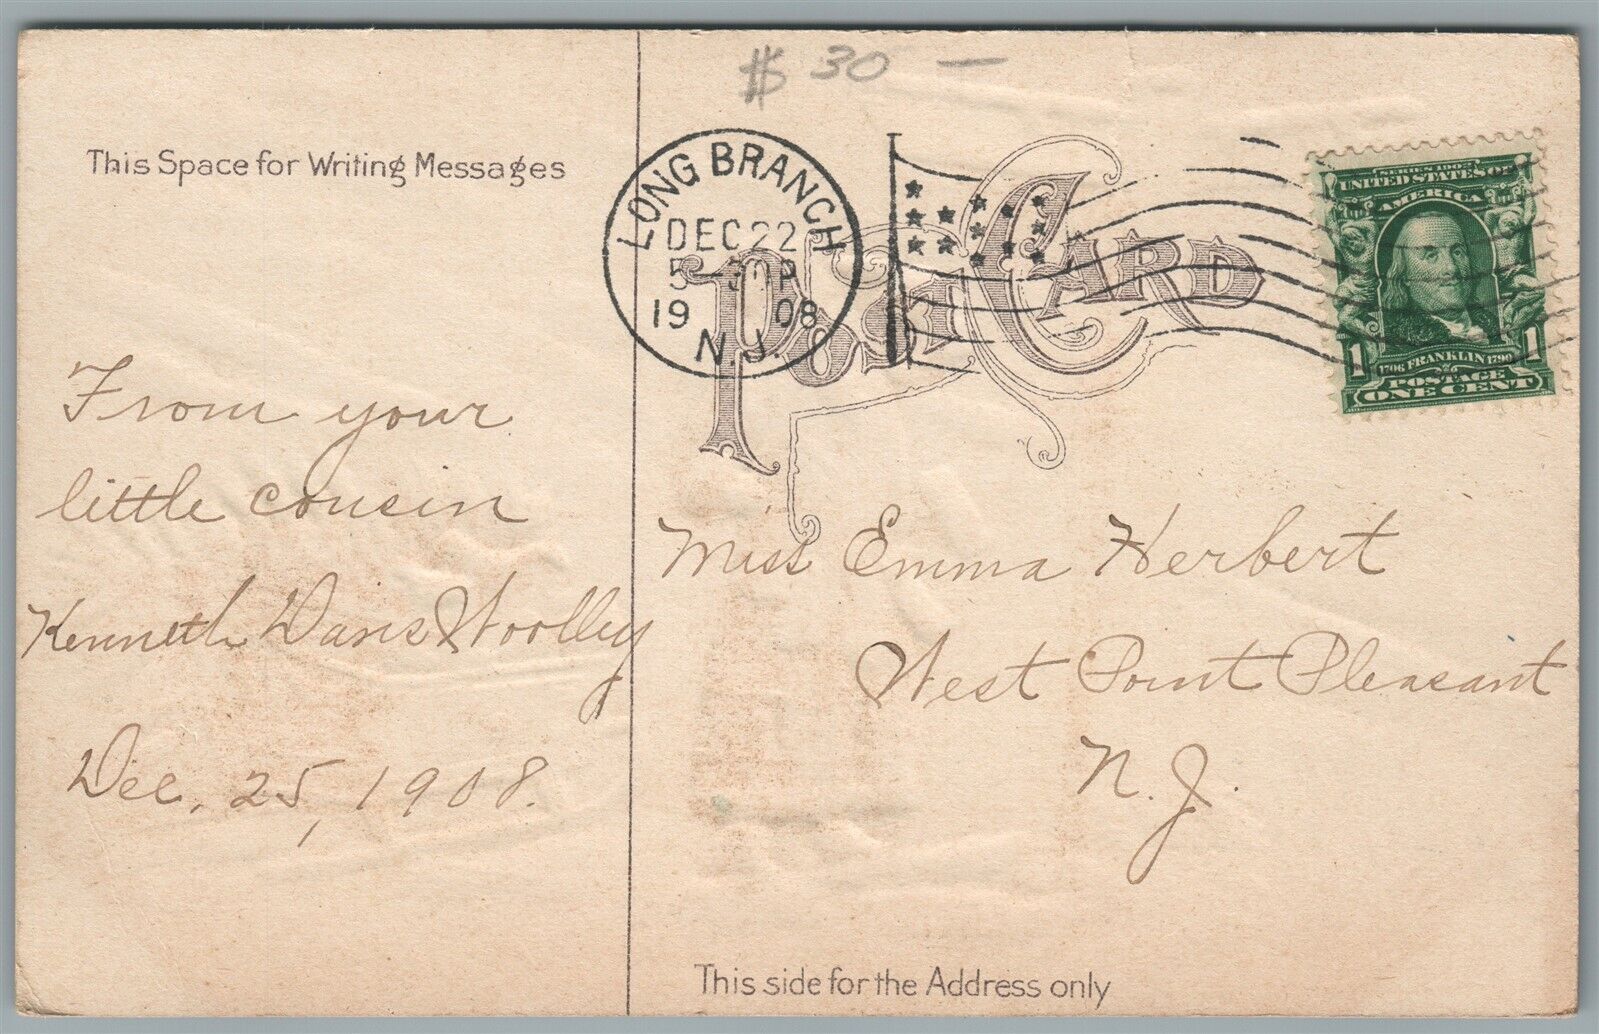 $ 30 —
This Space for Writing Messages
LONG BRANCH
DEC 22
5 - 30 P
1908
N.J.
POST CARD
UNITED STATES OF
AMERICA
1 1
1706 FRANKLIN 1790
POSTAGE
ONE CENT
From your
little cousin
Kenneth Davis Woolley
Dec. 25, 1908.
Miss Emma Herbert
West Point Pleasant
N. J.
This side for the Address only